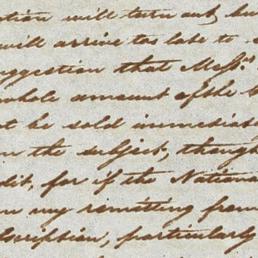 ation will turn out, but
will arrive too late to
uggestion that Messrs
whole amount of the
t be sold immedia
n the subject, though
dit, for if the Nationa
n my remitting from
scription, particularly